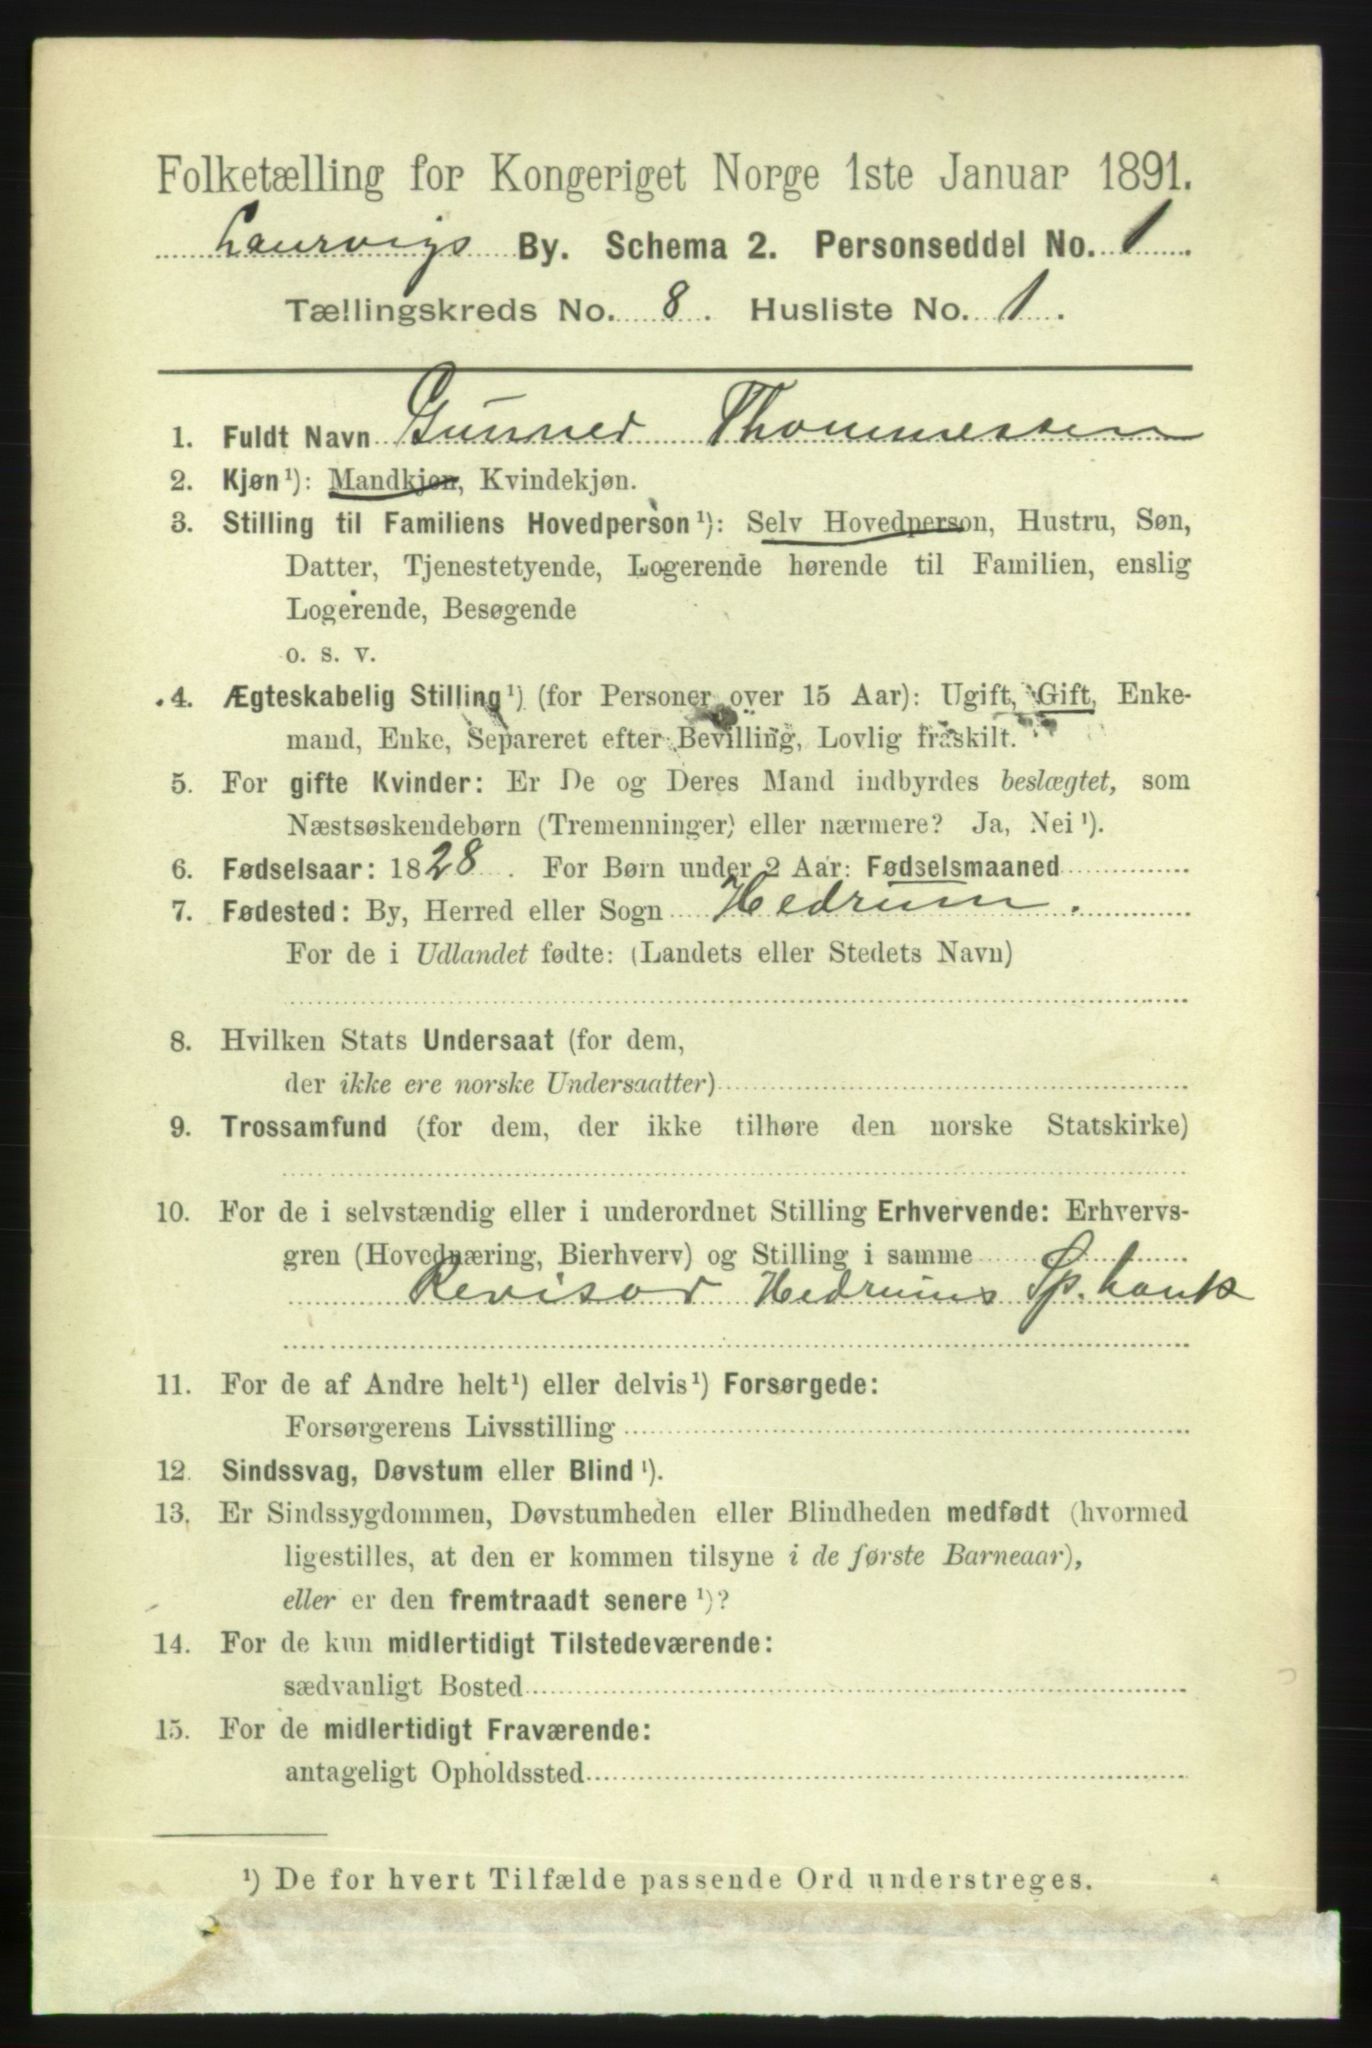 Folketælling for Kongeriget Norge 1ste Januar 1891.
Laurvigs By. Schema 2. Personseddel No. 1
Tællingskreds No. 8. Husliste No. 1.
1. Fuldt Navn Gunner Thommessen
2. Kjøn¹): Mandkjøn, Kvindekjøn.
3. Stilling til Familiens Hovedperson¹): Selv Hovedperson, Hustru, Søn,
Datter, Tjenestetyende, Logerende hørende til Familien, enslig
Logerende, Besøgende
o. s. v.
4. Ægteskabelig Stilling¹) (for Personer over 15 Aar): Ugift, Gift, Enke-
mand, Enke, Separeret efter Bevilling, Lovlig fraskilt.
5. For gifte Kvinder: Er De og Deres Mand indbyrdes beslægtet, som
Næstsøskendebørn (Tremenninger) eller nærmere? Ja, Nei¹).
6. Fødselsaar: 1828. For Børn under 2 Aar: Fødselsmaaned
7. Fødested: By, Herred eller Sogn Hedrum.
For de i Udlandet fødte: (Landets eller Stedets Navn)
8. Hvilken Stats Undersaat (for dem,
der ikke ere norske Undersaatter)
9. Trossamfund (for dem, der ikke tilhøre den norske Statskirke)
10. For de i selvstændig eller i underordnet Stilling Erhvervende: Erhvervs-
gren (Hovednæring, Bierhverv) og Stilling i samme
Revisor Hedrums Sp.bank
11. For de af Andre helt¹) eller delvis¹) Forsørgede:
Forsørgerens Livsstilling
12. Sindssvag, Døvstum eller Blind¹).
13. Er Sindssygdommen, Døvstumheden eller Blindheden medfødt (hvormed
ligestilles, at den er kommen tilsyne i de første Barneaar),
eller er den fremtraadt senere¹)?
14. For de kun midlertidigt Tilstedeværende:
sædvanligt Bosted
15. For de midlertidigt Fraværende:
antageligt Opholdssted
¹) De for hvert Tilfælde passende Ord understreges.